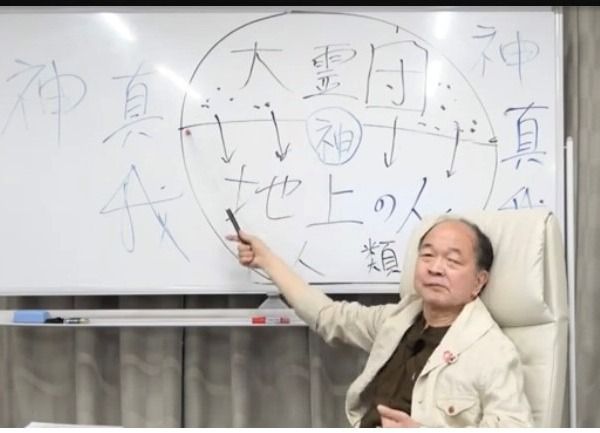 神
真我
大霊団
神
地上の人
人類
神
真